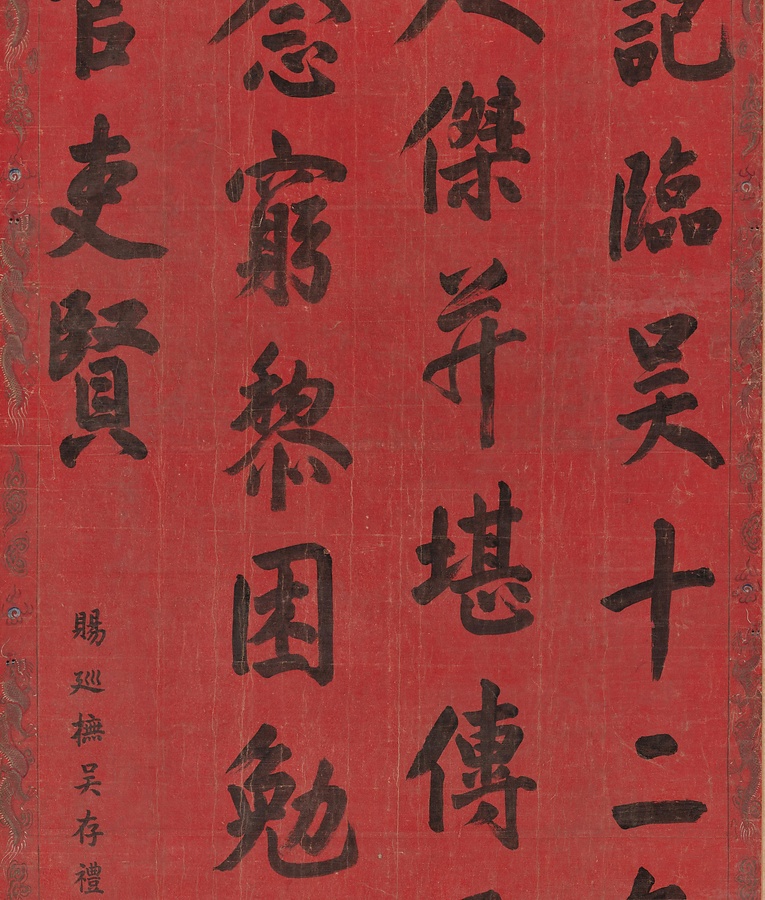 記臨吳十二
人傑并堪傳
念窮黎困勉
官吏賢
賜廵撫吳存禮